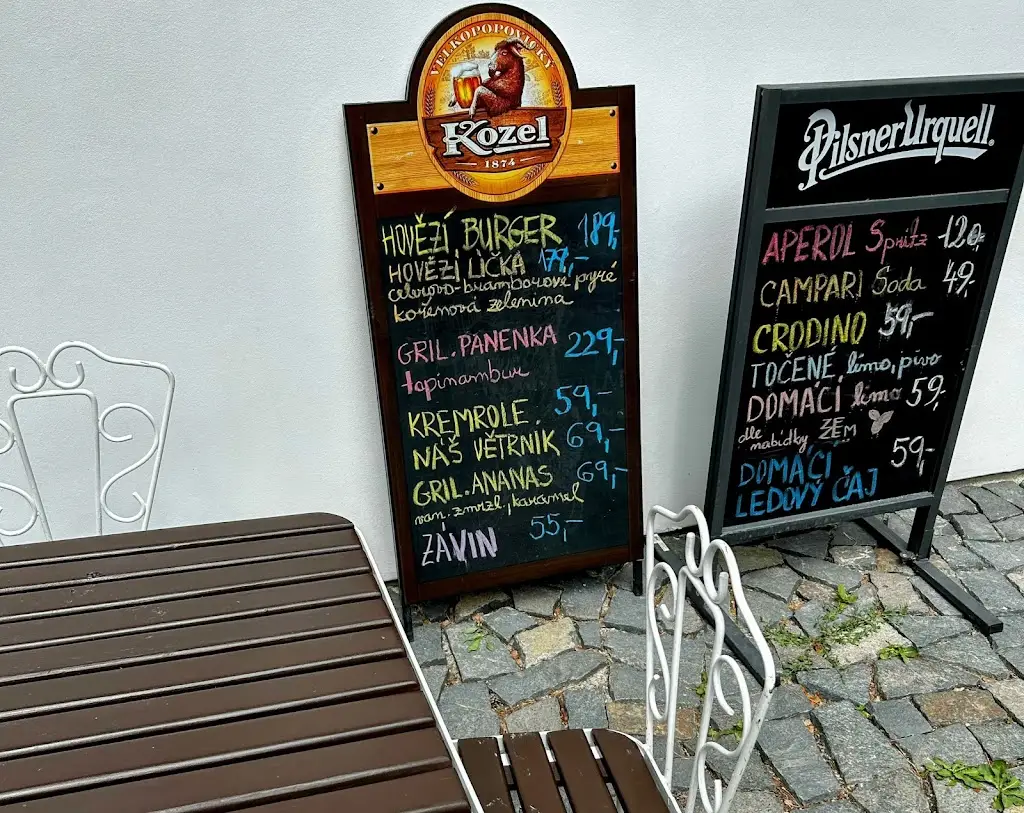 VELKOPOPOVICKÝ
Kozel
1874
HOVĚZÍ BURGER 189,-
HOVĚZÍ LÍČKA 179,-
celerovo-bramborové pyré
kořenová zelenina
GRIL. PANENKA 229,-
topinambur
KREMROLE 59,-
NÁŠ VĚTRNÍK 69,-
GRIL. ANANAS 69,-
van. zmrzl., karamel
ZÁVIN 55,-
Pilsner Urquell
APEROL Spritz 120,-
CAMPARI Soda 49,-
CRODINO 59,-
TOČENÉ limo, pivo
DOMÁCÍ limo 59,
dle nabídky ZEM
DOMÁCÍ 59,-
LEDOVÝ ČAJ